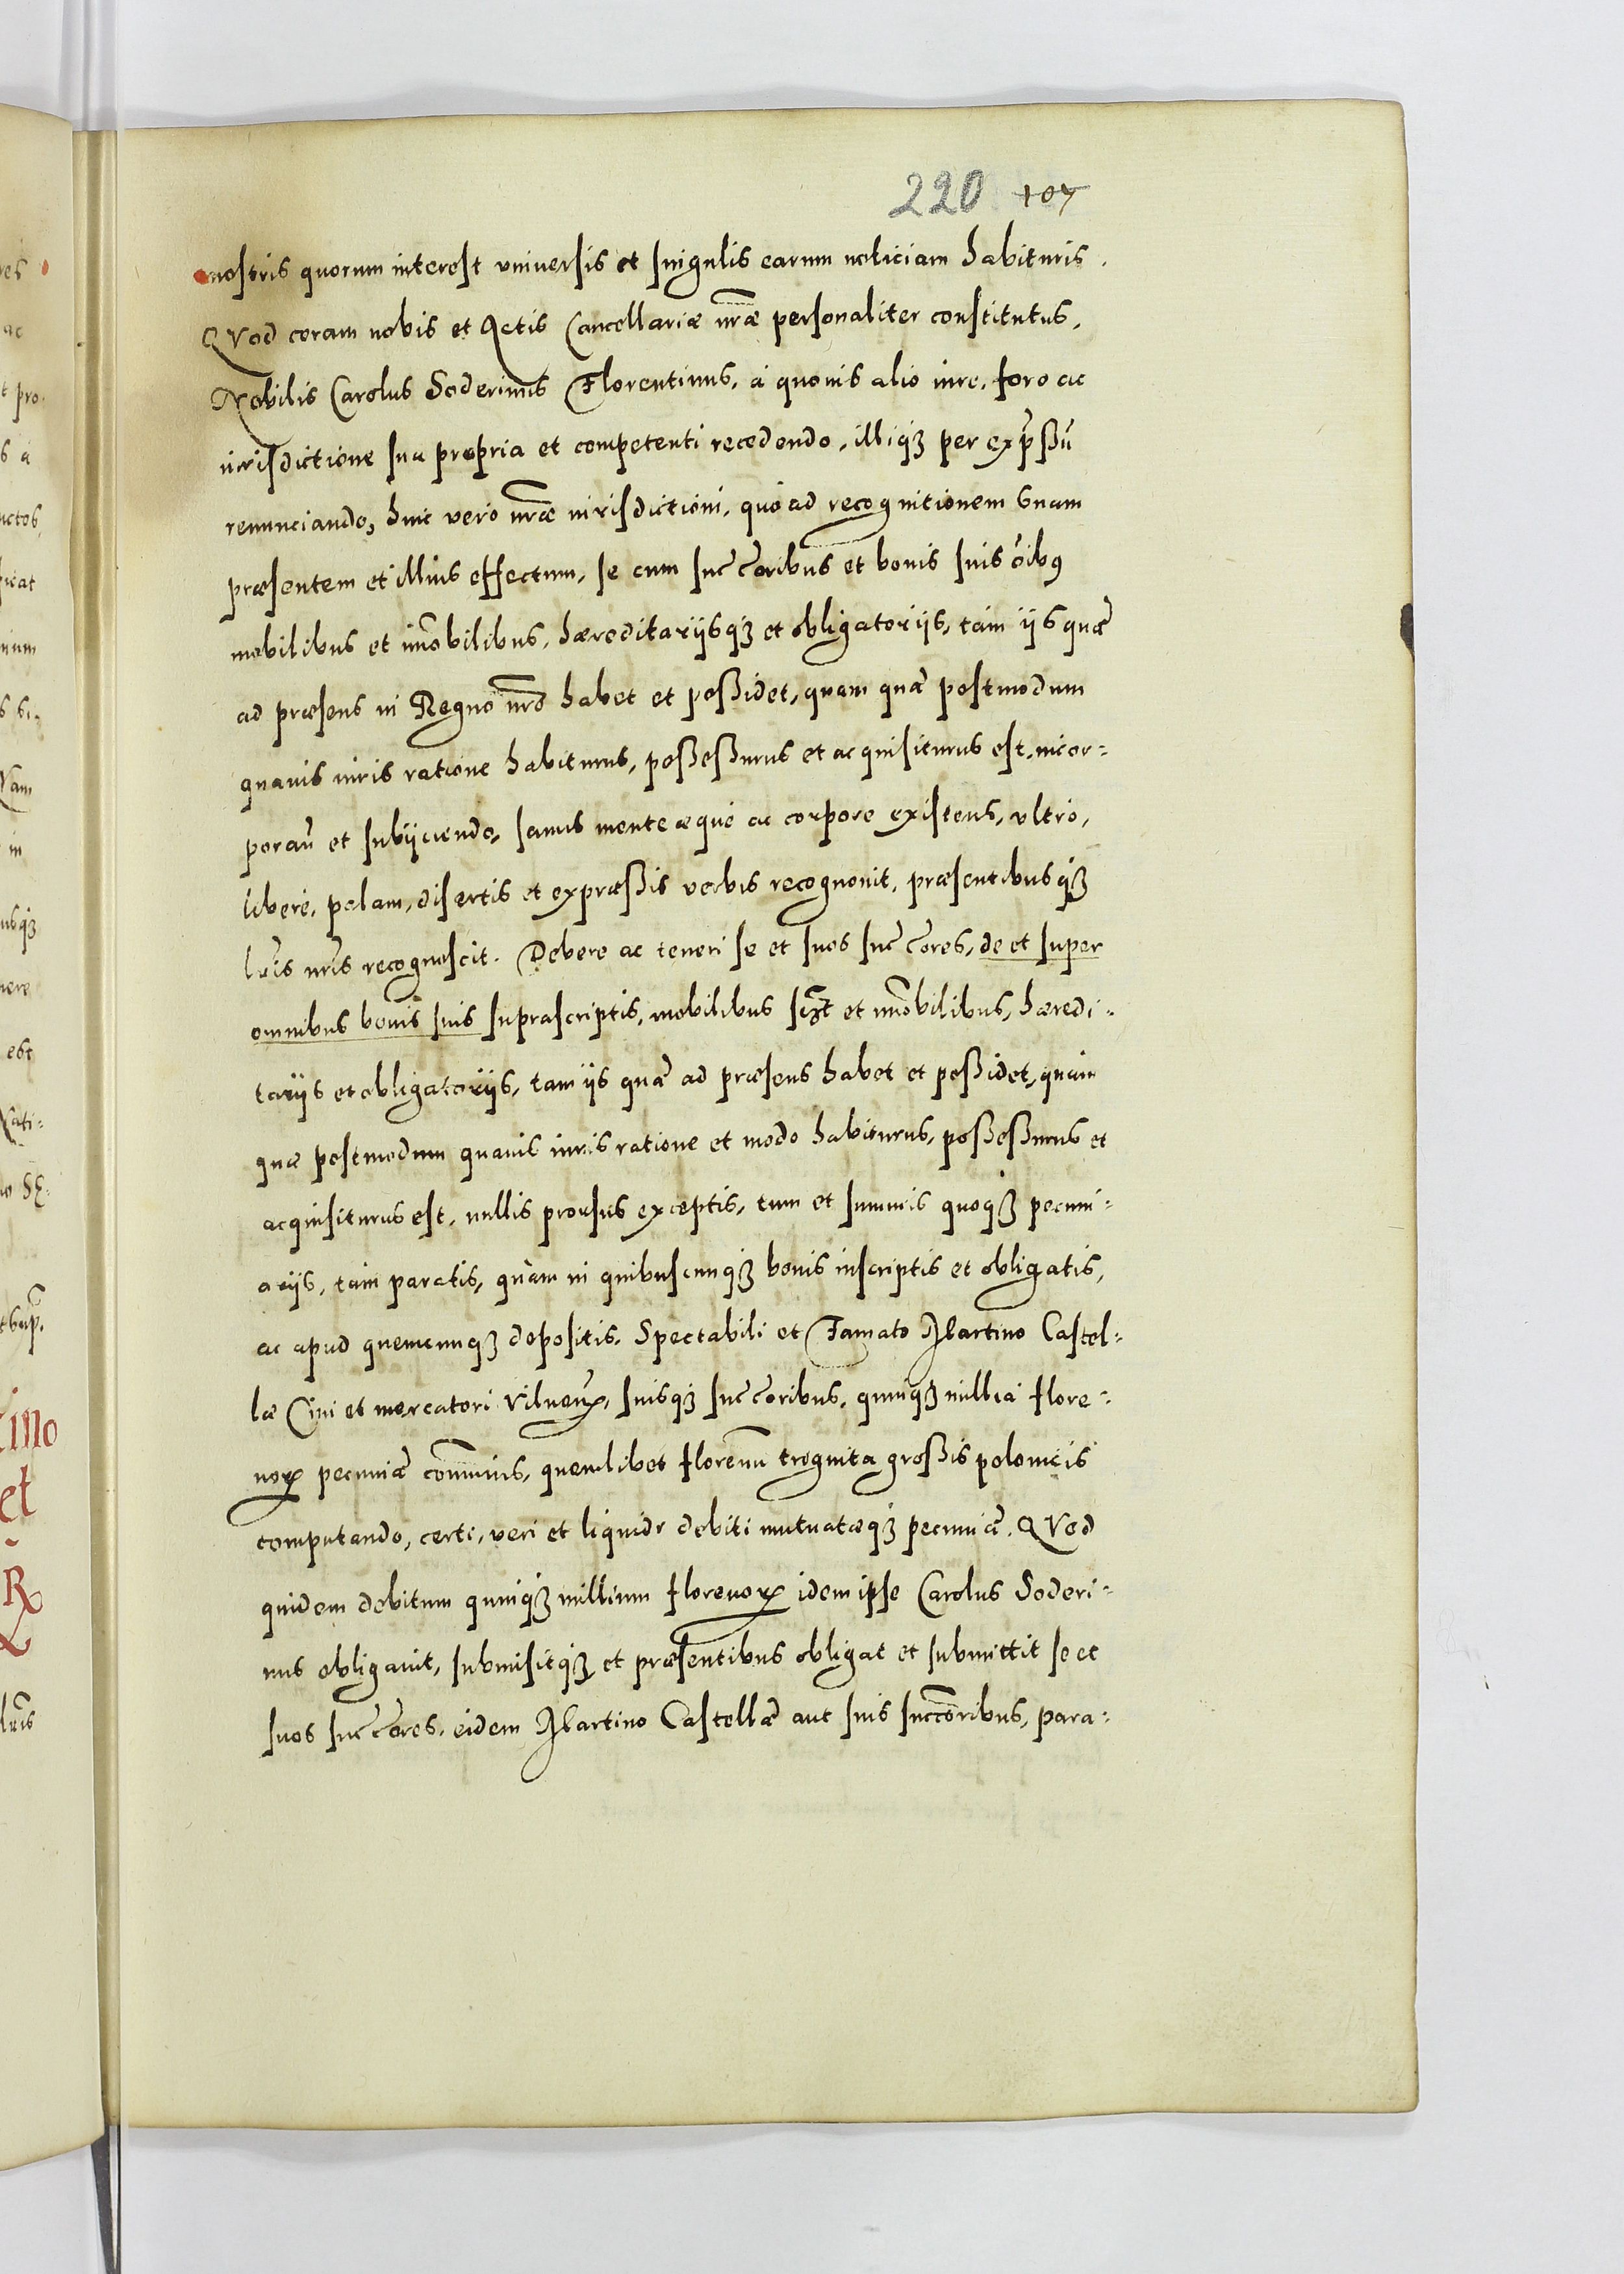 220 107
nostris quorum interest vniuersis et singulis earum noticiam habituris.
QVod coram nobis et Actis Cancellariæ nr̃æ personaliter constitutus,
Nobilis Carolus Soderinus Florentinus, à quouis alio iure, foro ac
iurisdictione sua propria et competenti recedendo, illiqꝫ per exp̃ssũ
renunciando, huic verò nr̃æ iurisdictioni, quò ad recognitionem vnam
præsentem et illius effectum, se cum succ̃oribus et bonis suis õibꝰ
mobilibus et im̃obilibus, hæreditarijsqꝫ et obligatorijs, tàm ijs quæ
ad præsens in Regno nr̃o habet et possidet, quam quæ postmodum
quauis iuris ratione habiturus, possessurus et acquisiturus est, incor=
porañ et subijciendo, sanus mente æquè ac corpore existens, vltrò,
liberè, palam, disertis et expræssis verbis recognouit, præsentibusqꝫ
lr̃is nr̃is recognoscit. Debere ac teneri se et suos succ̃ores, de et super
omnibus bonis suis suprascriptis, mobilibus et im̃obilibus, hæredi=
tarijs et obligatorijs, tam ijs quæ ad præsens habet et possidet, quàm
quæ postmodum quauis iuris ratione et modo habiturus, possessurus et
acquisiturus est, nullis prorsus exceptis, tum et summis quoqꝫ pecuni=
arijs, tàm paratis, quàm in quibuscunqꝫ bonis inscriptis et obligatis,
ac apud quemcunqꝫ depositis. Spectabili et Famato Martino Castel=
læ Ciui et mercatori Vilneñ, suisqꝫ succ̃oribus, quinqꝫ millia flore=
noꝝ pecuniæ com̃unis, quemlibet florenum treginta grossis polonicis
computando, certi, veri et liquidi debiti mutuatæqꝫ pecuniæ. QVod
quidem debitum quinqꝫ millium florenoꝝ idem ipse Carolus Soderi=
nus obligauit, submisitqꝫ et præsentibus obligat et submittit se et
suos succ̃ores. eidem Martino Castellæ aut suis succ̃oribus, para=